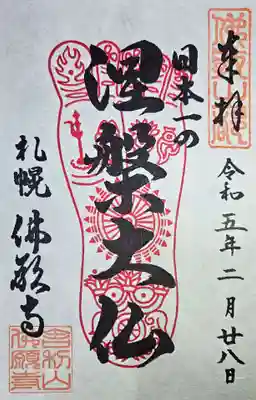 奉拝
令和五年二月廿八日
日本一の
涅槃大仏
札幌 佛願寺